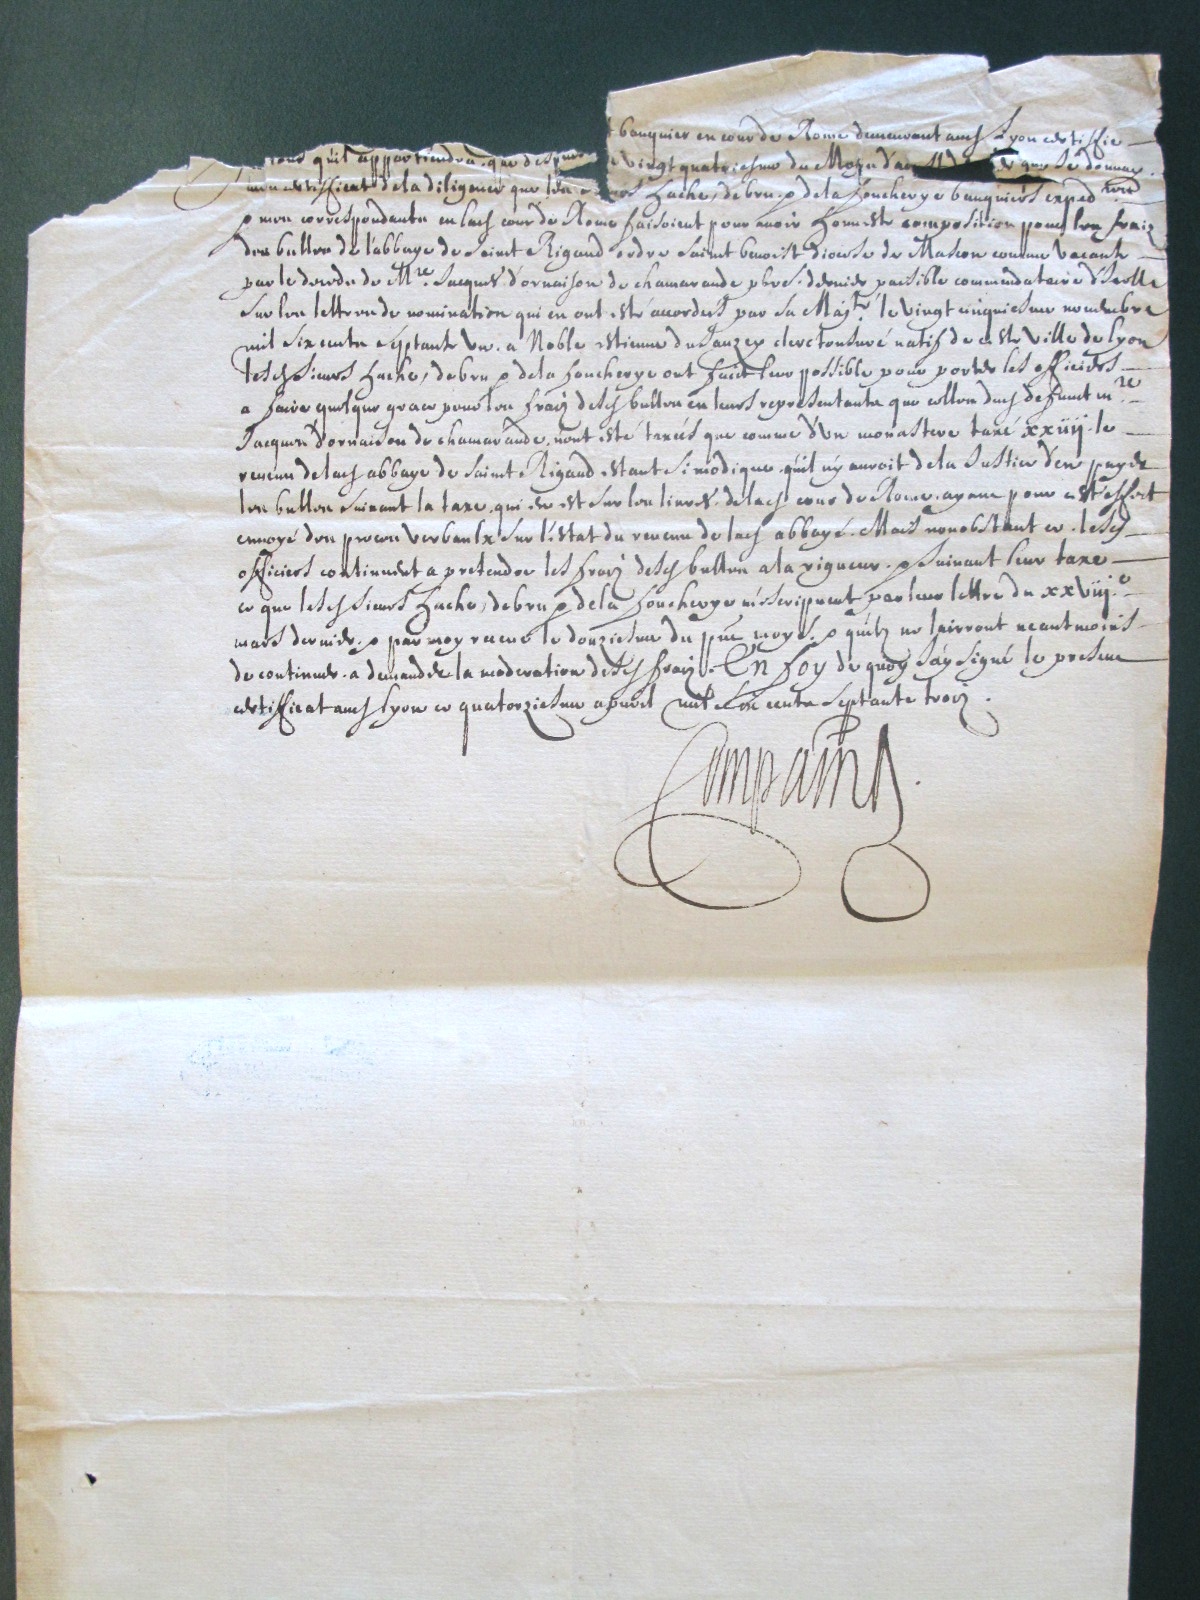 banquier en cour de Rome demeurant aud Lyon certiffie
tous qu'il appartiendra que despuis vingt quatriesme du Moys d'aoust que Je donnay
mon certifficat de la diligence que les Hache, debru & de la foucherye banquiers exped.res
& mon correspondants en lad cour de Rome faisoient pour avoir honneste composition pour les fraiz
des bulles de l'abbaye de Saint Rigaud ordre Saint benoist diocese de Mascon comme vacante
par le decedz de M.re Jacques d'ornaison de chamarande pbre. dernier paisible commendataire d'Icelle
Sur les lettres de nomination qui en ont esté accordées par Sa Maj.té le vingt cinquiesme novembre
mil six cents septante un. a Noble estienne du Sauzey clerc tonsuré natif de ceste ville de Lyon
lesd Sieurs Hache, debru & de la foucherye ont faict leur possible pour porter les officiers
a faire quelque grace pour les fraiz desd bulles en leurs representants que celles dud deffunct m.re
Jacques d'ornaison de chamarande n'ont esté taxées que comme d'un monastere taxé xxiiij. le
revenu de lad abbaye de Saint Rigaud estant Si modique qu'il n'y auroit de la Justice d'en payer
les bulles Suivant la taxe qui en est Sur les livres de lad cour de Rome, ayant pour cest effect
envoyé des proces verbaulx Sur l'estat du revenu de lad abbaye. Mais nonobstant ce lesd
officiers continuent a pretendre les fraiz desd bulles a la rigueur & Suivant leur taxe
ce que lesd Sieurs Hache, debru & de la foucherye m'escripvent par leur lettre du xxviij.e
mars dernier & par moy receue le douziesme du pnt moys, & qu'ilz ne lairront neantmoins
de continuer a demander la moderation desd fraiz. En foy de quoy J'ay Signé le present
certifficat aud Lyon ce quatorziesme apvril mil Six cents Septante troiz.
Compain